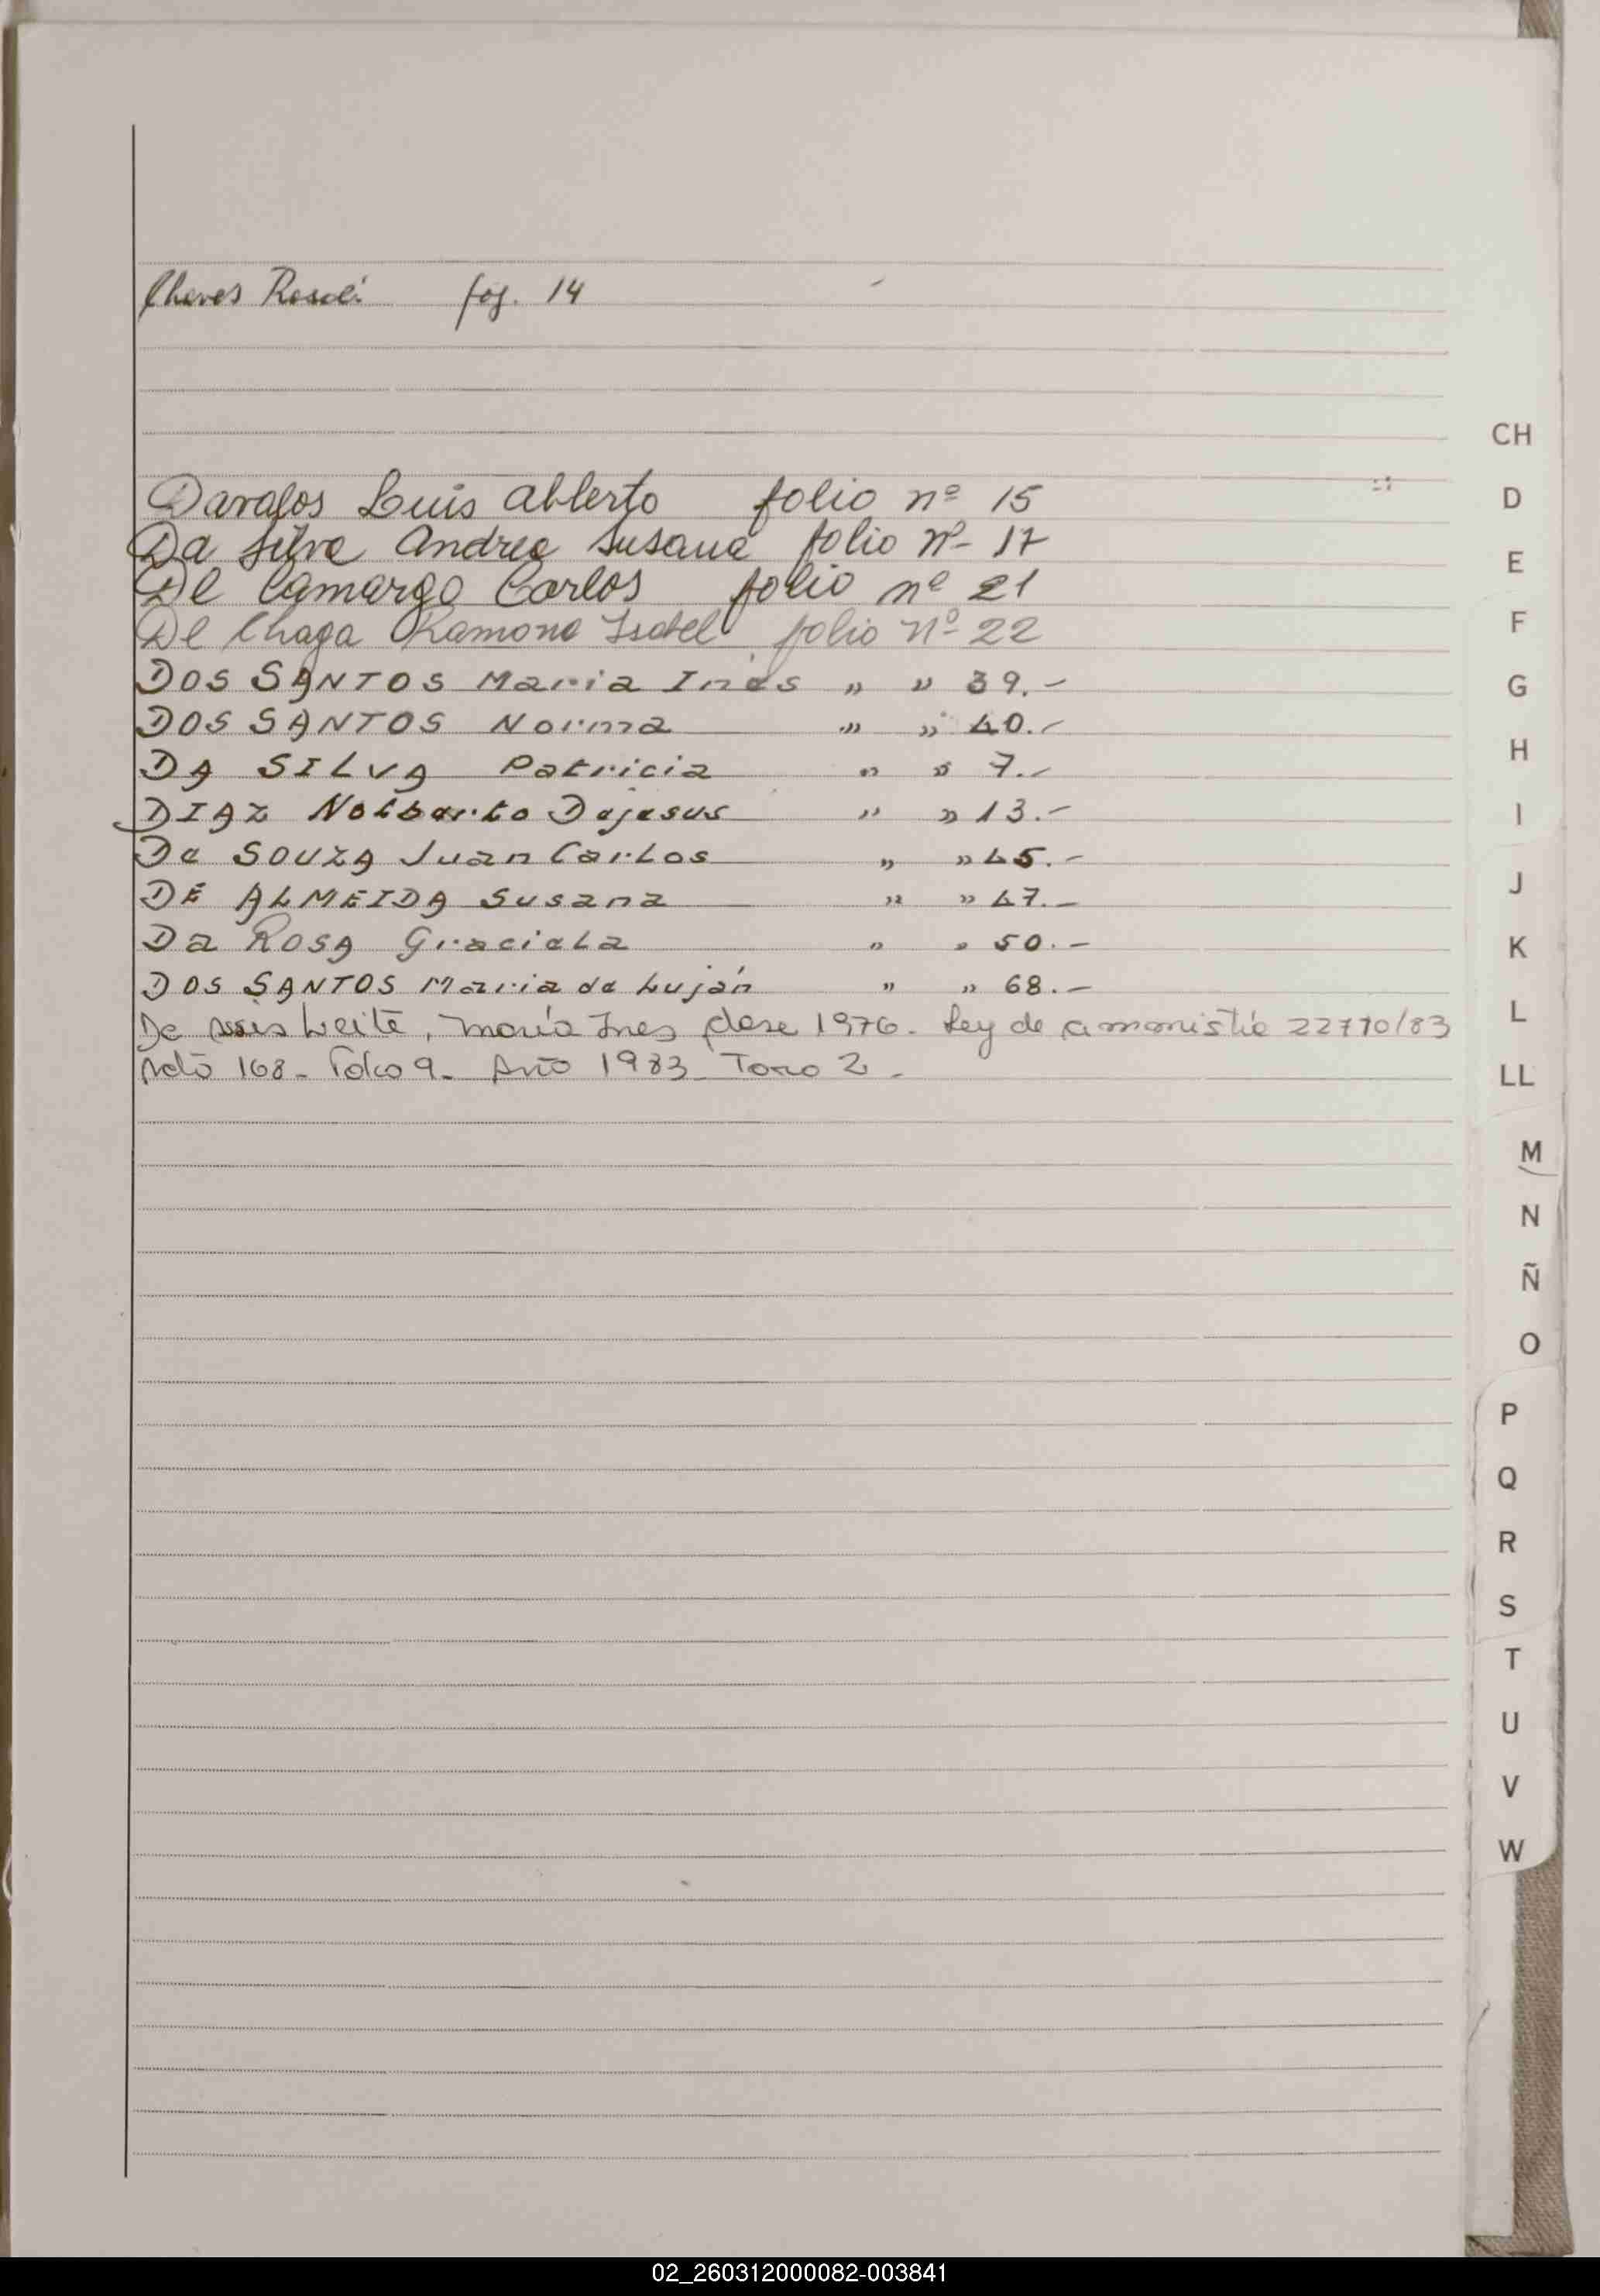 Chaves Roseli fog. 14
Davalos Luis Alberto folio nº 15
Da Silva Andrea Susana folio nº 17
De Camargo Carlos folio nº 21
De Chaga Ramona Isabel folio nº 22
DOS SANTOS Maria Inés " " 39.-
DOS SANTOS Norma " " 40.-
DA SILVA Patricia " " 7.-
DIAZ Norberto Dejesus " " 13.-
De SOUZA Juan Carlos " " 45.-
DE ALMEIDA Susana " " 47.-
Da ROSA Graciela " " 50.-
DOS SANTOS Maria de Luján " " 68.-
De Assis Leite, María Ines clase 1976. Ley de amonistia 22770/83
Acto 168- Folio 9- Año 1983 Tomo 2-
CH
D
E
F
G
H
I
J
K
L
LL
M
N
Ñ
O
P
Q
R
S
T
U
V
W
02_260312000082-003841